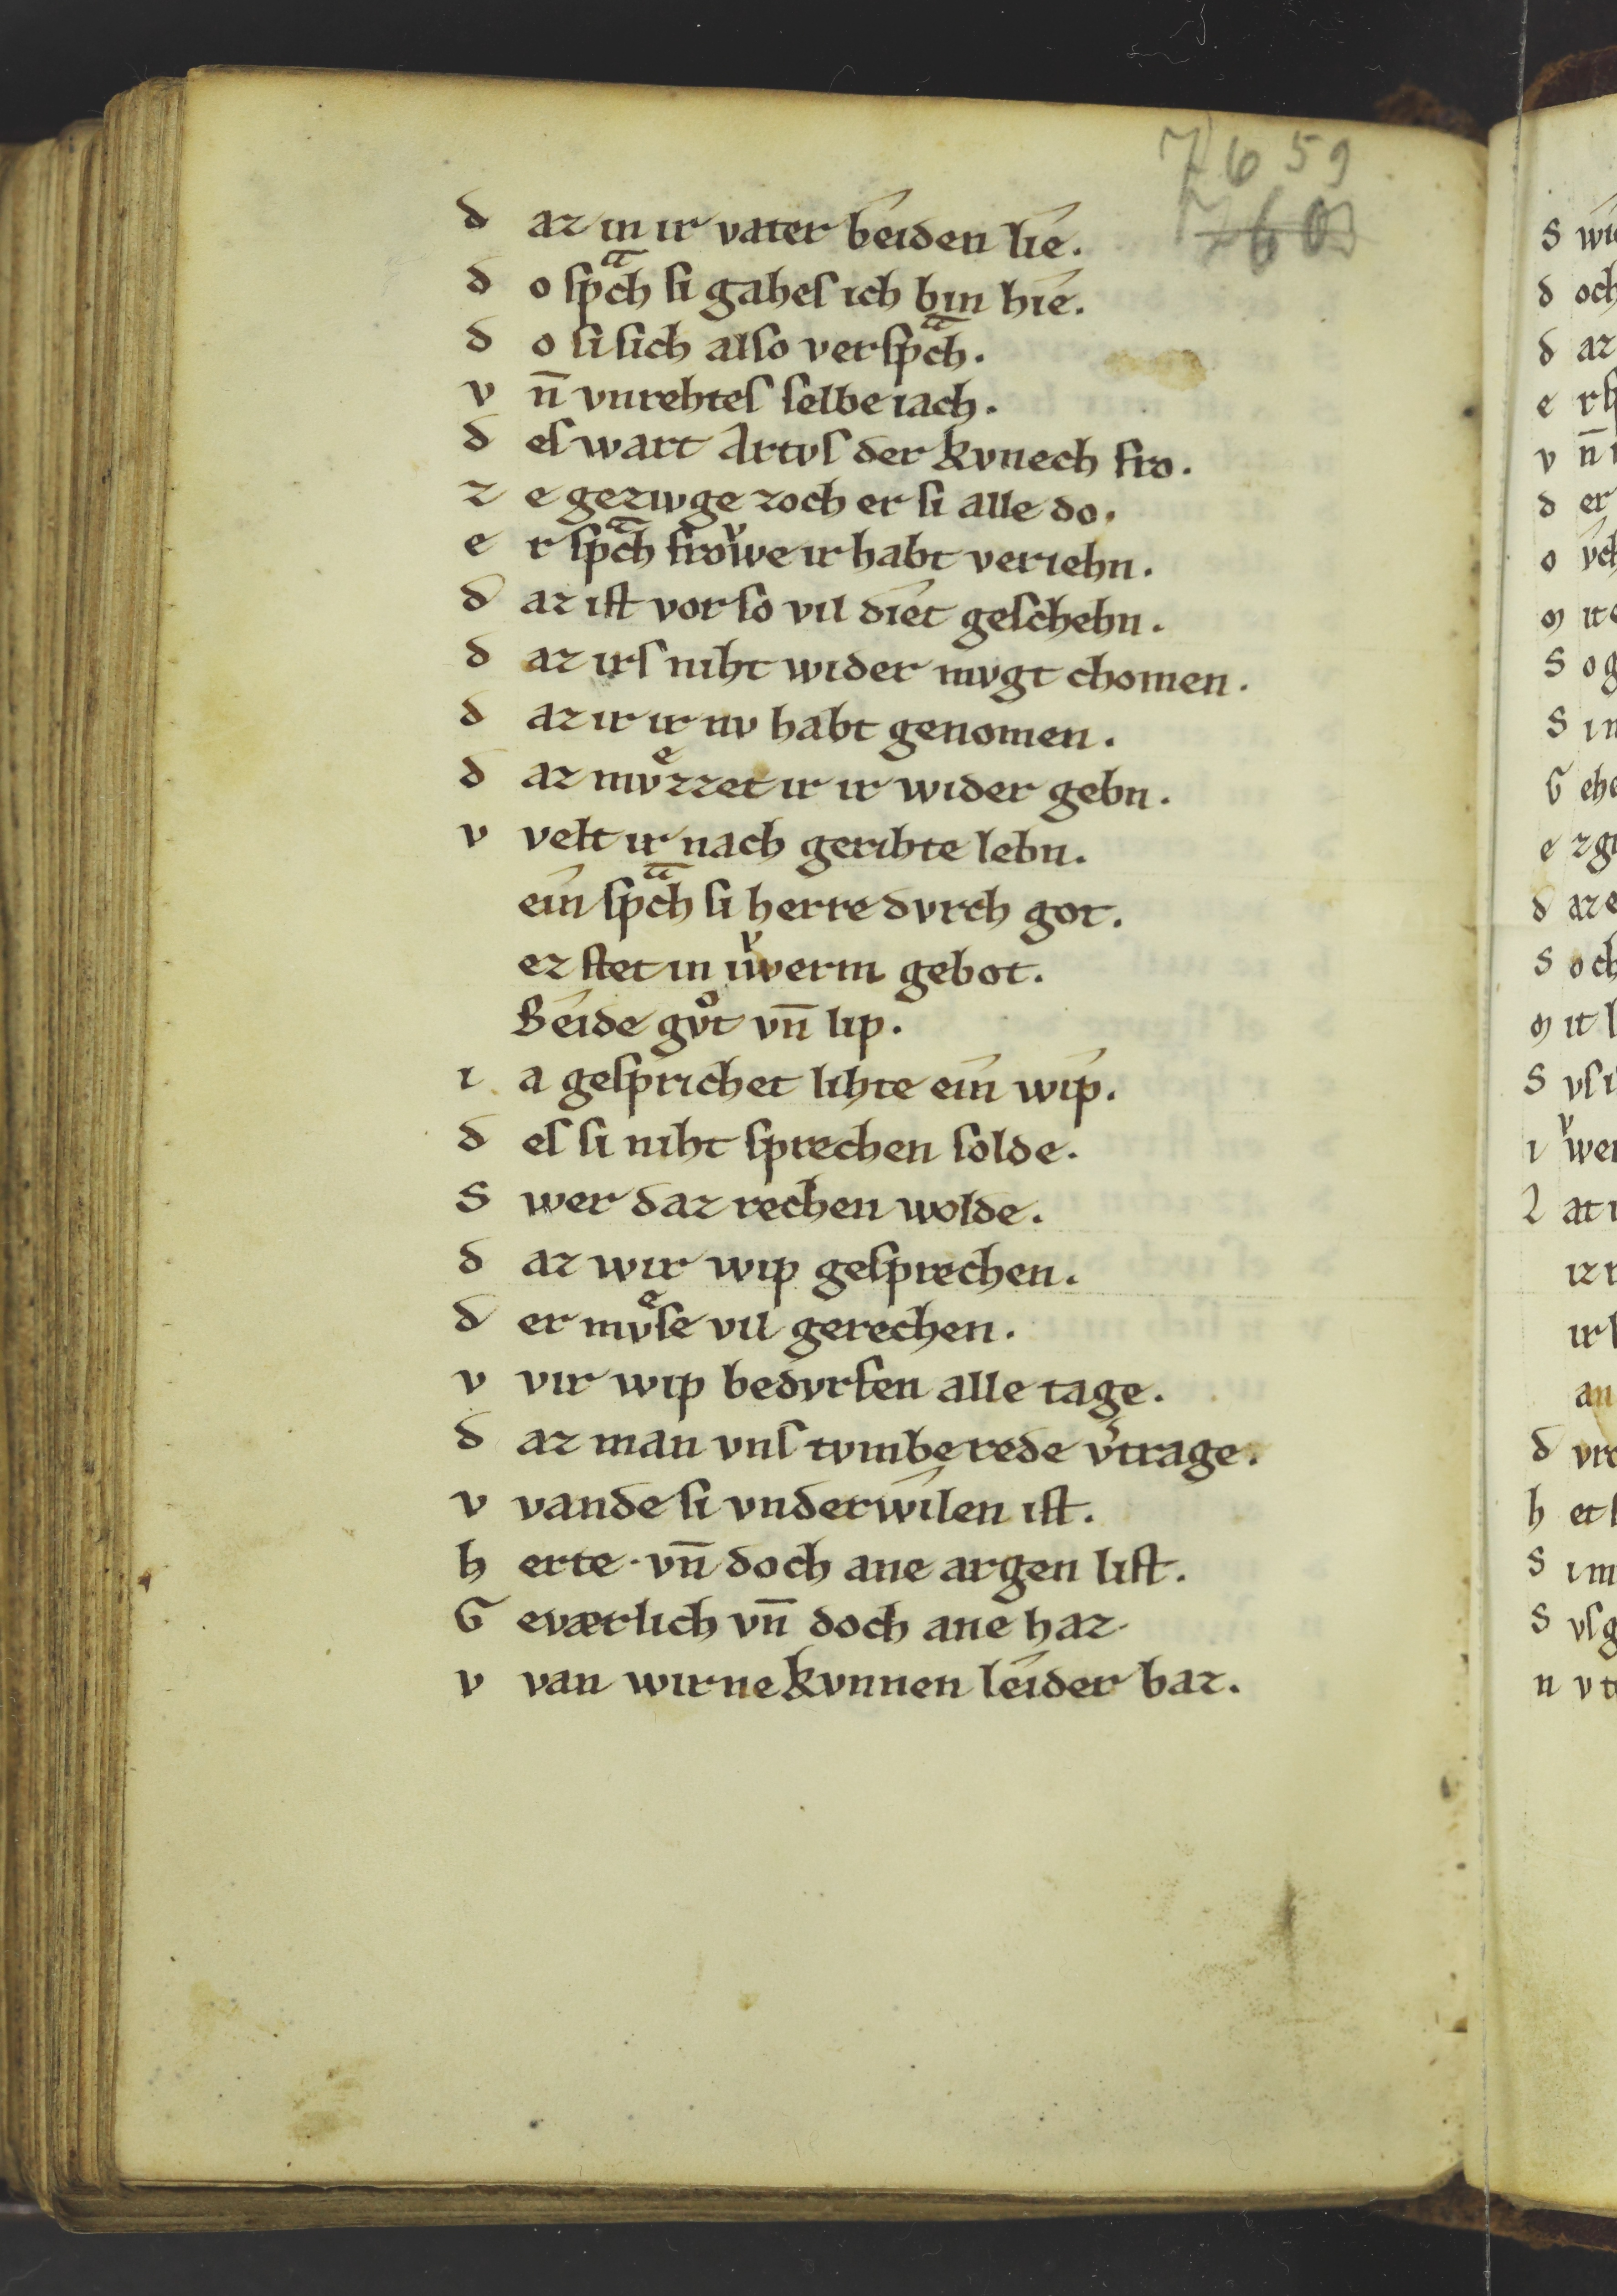 7659
7660
d az in ir vater beíden líe.
d o ſpͣch ſi gaheſ ich bin híe.
d o ſi ſich alſo verſpͣch.
v n̄ vnrehteſ ſelbe iach.
d eſ wart Artvſ der kvnech fro.
z e gezivge zoch er ſi alle do.
e r ſpͣch froͮwe ir habt veriehn.
d az iſt vor ſo vil díet geſchehn.
d az irſ niht wider mvgt chomen.
d az ir ir nv habt genomen.
d az mvͤzzet ir ir wider gebn.
v velt ir nach gerihte lebn.
eín ſpͣch ſi herre dvrch got.
ez ſtet in iͮwerm gebot.
Beíde gvͦt vn̄ lip.
i a geſprichet lihte eín wíp.
d eſ ſi niht ſprechen ſolde.
S wer daz rechen wolde.
d az wir wip geſprechen.
d er mvͤſe vil gerechen.
v vir wip bedvrfen alle tage.
d az man vnſ tvmbe rede v͛trage.
v vande ſi vnderwílen iſt.
h erte · vn̄ doch ane argen liſt.
G eværlich vn̄ doch ane haz·
v van wir ne kvnnen leíder baz.